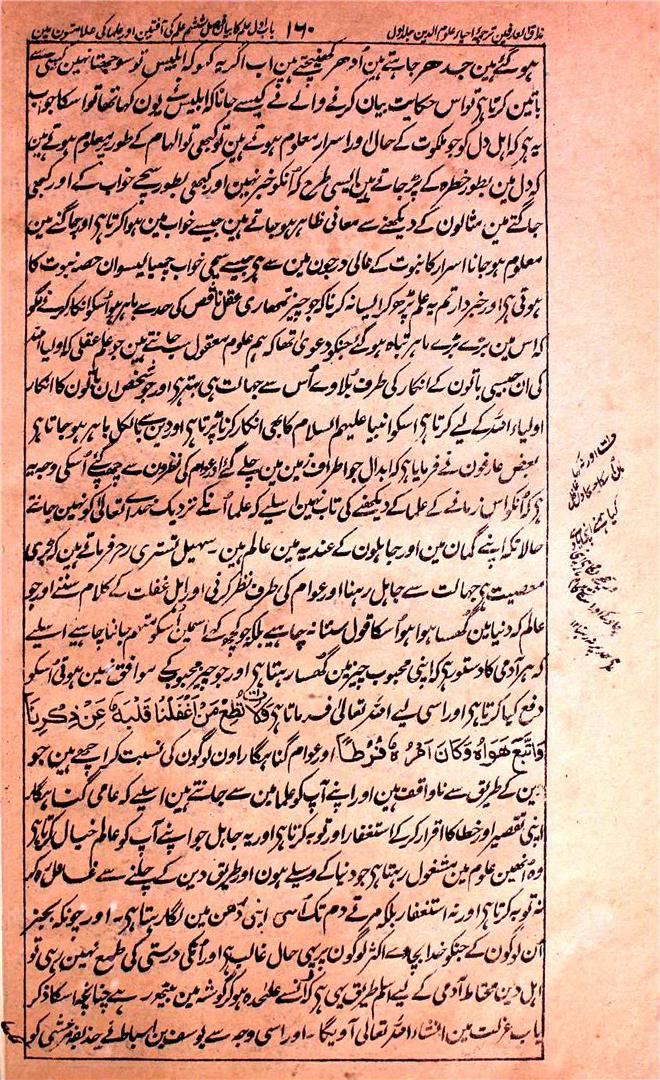 مذاق العارفین ترجمہ احیاء علوم الدین جلد اول ۱۶۰ باب اول علم کا بیان فصل ششم علم کی آفتین اور علما کی علامتون مین
ہوگئے ہین جدھر جاتے ہین اُدھر کھنچتے ہین اب اگر یہ کہو کہ ابلیس تو سوجھتا نہین کسی سے
باتین کرتا ہے تو اس حکایت بیان کرنے والے نے کیسے جانا کہ ابلیس نے یون کہا تھا تو اسکا جواب
یہ ہے کہ اہل دل کو جو ملکوت کے حال اور اسرار معلوم ہوتے ہین تو کبھی تو الہام کے طور پر معلوم ہوتے ہین
کہ دل مین بطور خطرہ کے پڑ جاتے ہین ایسی طرح کہ اُنکو خبر نہین اور کبھی بطور سچے خواب کے اور کبھی
جاگتے مین مثالون کے دیکھنے سے معانی ظاہر ہو جاتے ہین جیسے خواب مین ہوا کرتا ہے اور جاگنے مین
معلوم ہو جانا اسرار کا نبوت کے عالی درجون مین سے ہے جیسے سچی خواب چھیالیسوان حصہ نبوت کا
ہوتی ہے اور خبردار تم یہ علم پڑھ کر ایسا نہ کرنا کہ جو چیز تمھاری عقل ناقص کی حد سے باہر ہو اُسکو انکار کرنے لگو
کہ اس مین بڑے بڑے ماہر تباہ ہوگئے جنکو دعوی تھا کہ ہم علوم معقول جانتے ہین جو علم عقلی کہ اولیاء اللہ
کی ان جیسی باتون کے انکار کی طرف بلاوے اُس سے جہالت ہی بہتر ہے اور جو شخص ان باتون کا انکار
اولیاء اللہ کے لیے کرتا ہے اسکو انبیا علیہم السلام کا بھی انکار کرنا پڑتا ہے اور دین سے بالکل باہر ہو جاتا ہے
بعض عارفون نے فرمایا ہے کہ ابدال جو اطراف زمین مین چلے گئے اور عوام کی نظرون سے چھپ گئے اُسکی وجہ یہ
ہے کہ اُنکو اس زمانے کے علما کے دیکھنے کی تاب نہین اسلیے کہ علما اُنکے نزدیک خداے تعالی کو نہین جانتے
حالانکہ اپنے گمان مین اور جاہلون کے عندیہ مین عالم ہین۔ سہل تستری رح فرماتے ہین کہ بڑی
معصیت ہے جہالت سے جاہل رہنا اور عوام کی طرف نظر کرنی اور اہل غفلت کے کلام سننے اور جو
عالم کہ دنیا مین گھسا ہوا ہو اُسکا قول سننا نہ چاہیے بلکہ جو کچھ کہے اسمین اُسکو متہم جاننا چاہیے اسلیے
کہ ہر آدمی کا دستور ہے کہ اپنی محبوب چیز مین گھسا رہتا ہے اور جو چیز محبوب کے موافق نہین ہوتی اُسکو
دفع کیا کرتا ہے اور اسی لیے اللہ تعالی فرماتا ہے وَلَا تُطِعْ مَنْ اَغْفَلْنَا قَلْبَهٗ عَنْ ذِكْرِنَا
وَاتَّبَعَ هَوَاهُ وَكَانَ اَمْرُهٗ فُرُطًا اور عوام گناہگار اون لوگون کی نسبت کر اچھے ہین جو
دین کے طریق سے ناواقف ہین اور اپنے آپ کو علما مین سے جانتے ہین اسلیے کہ عامی گناہگار
اپنی تقصیر اور خطا کا اقرار کرکے استغفار اور توبہ کرتا ہے اور یہ جاہل جو اپنے آپ کو عالم خیال کرتا ہے
وہ اُنھین علوم مین مشغول رہتا ہے جو دنیا کے وسیلے ہون اور طریق دین کے چلنے سے غافل ہو کر
نہ توبہ کرتا ہے اور نہ استغفار بلکہ مرتے دم تک اُسی اپنی دُھن مین لگا رہتا ہے۔ اور چونکہ بجز
اُن لوگون کے جنکو خدا بچاوے اکثر لوگون پر یہی حال غالب ہے اور اُنکی درستی کی طمع نہین رہی تو
اہل دین محتاط آدمی کے لیے اسلم طریق یہی ہے کہ اُنسے علحدہ ہو کر گوشہ مین بیٹھ رہے چنانچہ اسکا ذکر
باب عزلت مین انشاء اللہ تعالی آویگا۔ اور اسی وجہ سے یوسف بن اسباط نے حذیفہ مرعشی کو